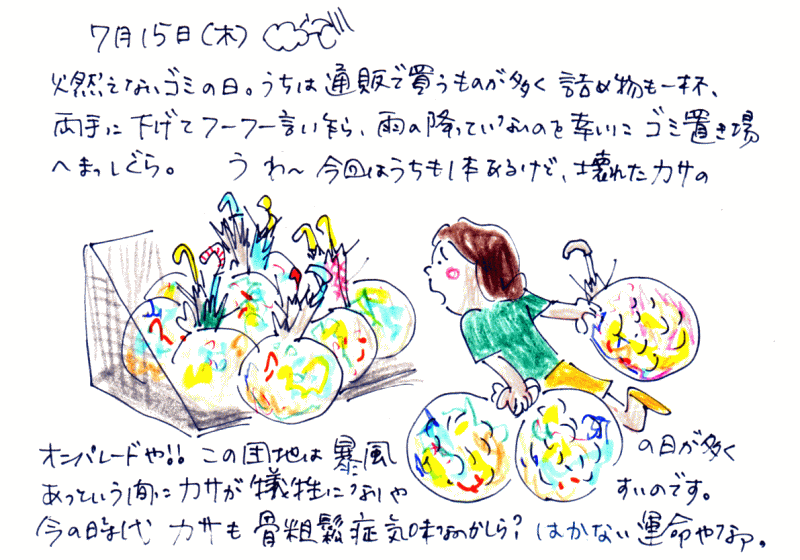 7月15日(木)
火然えないゴミの日。うちは通販で買うものが多く詰め物も一杯、
両手に下げてフーフー言い乍ら、雨の降っていないのを幸いにゴミ置き場
へまっしぐら。 うわ〜今回はうちも1本あるけど、壊れたカサの
オンパレードや!! この団地は暴風の日が多く
あっという間にカサが犠牲になりやすいのです。
今の時代カサも骨粗鬆症気味なのかしら?はかない運命やなァ。